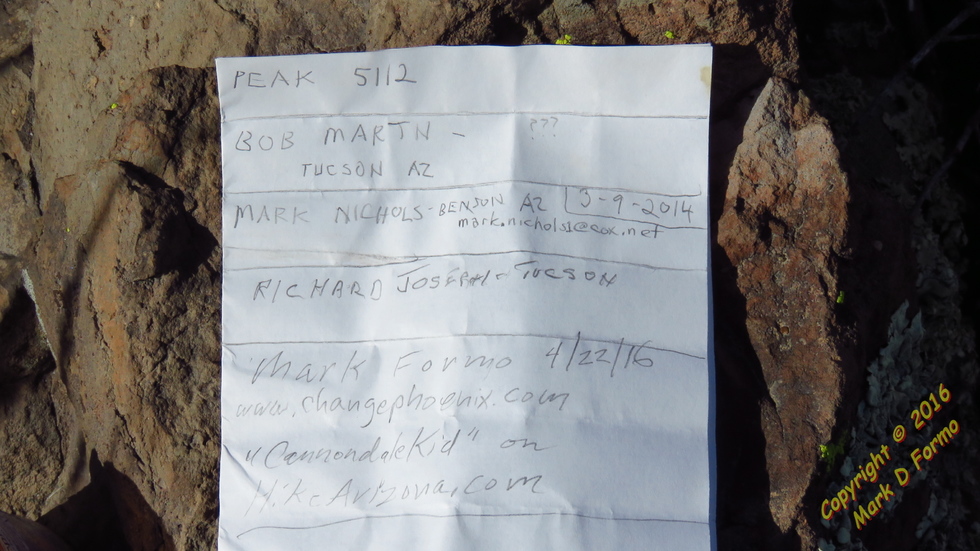 PEAK 5112
BOB MARTN - ???
TUCSON AZ
MARK NICHOLS - BENSON AZ 3-9-2014
mark.nichols1@cox.net
RICHARD JOSEPH - TUCSON
Mark Formo 4/22/16
www.changephoenix.com
"CannondaleKid" on
HikeArizona.com
Copyright © 2016
Mark D Formo